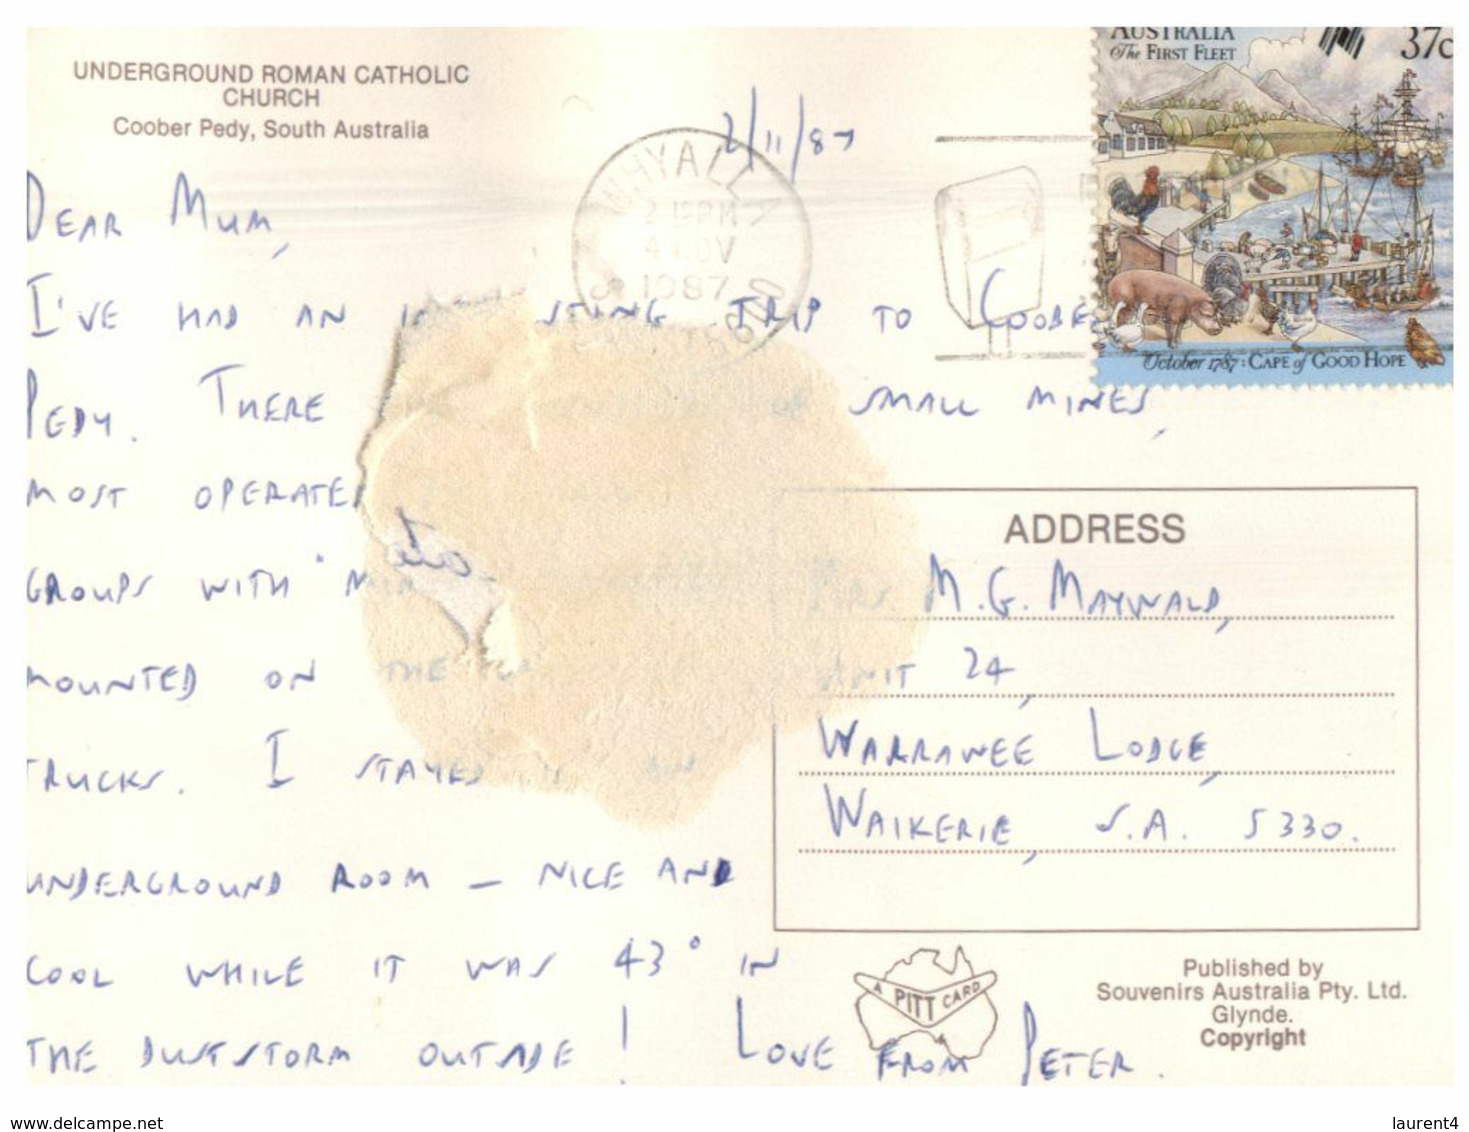 UNDERGROUND ROMAN CATHOLIC
CHURCH
Coober Pedy, South Australia
AUSTRALIA
The FIRST FLEET
37c
October 1787: CAPE of GOOD HOPE
2/11/87
WHYALLA
4 NOV
1987
DEAR MUM,
I'VE HAD AN TRIP TO COOBER
PEDY. THERE OF SMALL MINES,
MOST OPERATED
GROUPS WITH
MOUNTED ON THE
TRUCKS. I STAYED IN AN
UNDERGROUND ROOM – NICE AND
COOL WHILE IT WAS 43° IN
THE DUSTSTORM OUTSIDE! LOVE FROM PETER.
ADDRESS
MRS. M.G. MAYWALD,
UNIT 24,
WARRAWEE LODGE,
WAIKERIE, S.A. 5330.
A PITT CARD
Published by
Souvenirs Australia Pty. Ltd.
Glynde.
Copyright
www.delcampe.net
laurent4